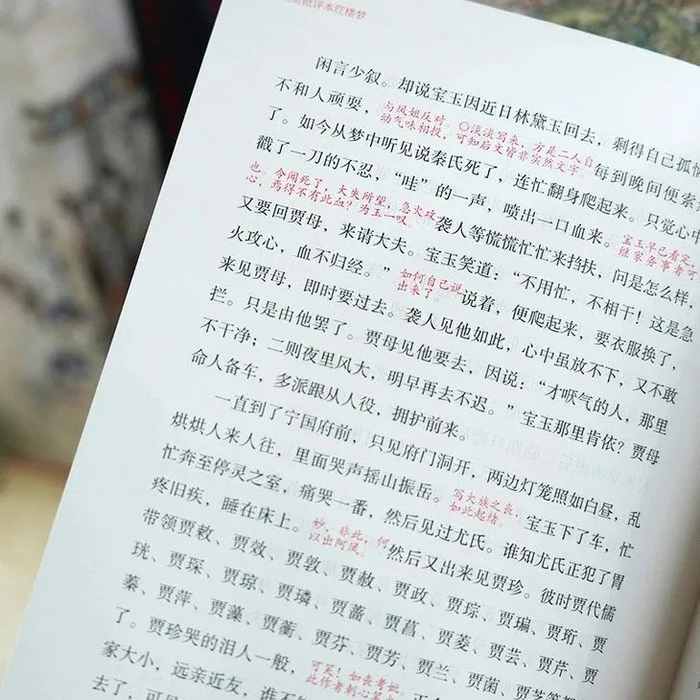 批评本红楼梦
闲言少叙。却说宝玉因近日林黛玉回去，剩得自己孤
不和人顽耍，
与凤姐反对。○淡淡写来，方是二人自
幼气味相投，可知后文皆非实然文字。
每到晚间便索
了。如今从梦中听见说秦氏死了，连忙翻身爬起来。只觉心中
戳了一刀的不忍，“哇”的一声，喷出一口血来。
宝玉早已看定，
继家务事者
也，今闻死了，大失所望。急火攻
心，焉得不有此血？为玉一叹
袭人等慌慌忙忙来挡扶，问是怎么样，
又要回贾母，来请大夫。宝玉笑道：“不用忙，不相干！这是急
火攻心，血不归经。”
如何自己说
出来了。
说着，便爬起来，要衣服换了，
来见贾母，即时要过去。袭人见他如此，心中虽放不下，又不敢
拦。只是由他罢了。贾母见他要去，因说：“才咽气的人，那里
不干净；二则夜里风大，明早再去不迟。”宝玉那里肯依？贾母
命人备车，多派跟从人役，拥护前来。
一直到了宁国府前，只见府门洞开，两边灯笼照如白昼，乱
烘烘人来人往，里面哭声摇山振岳。
写大族之丧，
如此起绪。
宝玉下了车，忙
忙奔至停灵之室，痛哭一番，然后见过尤氏。谁知尤氏正犯了胃
疼旧疾，睡在床上。
妙，非此，何
以出阿凤。
然后又出来见贾珍。彼时贾代儒
带领贾敕、贾效、贾敦、贾赦、贾政、贾琮、贾㻞、贾珩、贾
珖、贾琛、贾琼、贾璘、贾蔷、贾菖、贾菱、贾芸、贾芹、贾
蓁、贾萍、贾藻、贾蘅、贾芬、贾芳、贾兰、贾菌、贾芝等
了。贾珍哭的泪人一般，
可笑！如丧考妣，
此作者刺心笔
家大小，远亲近友，谁不
去了，可见